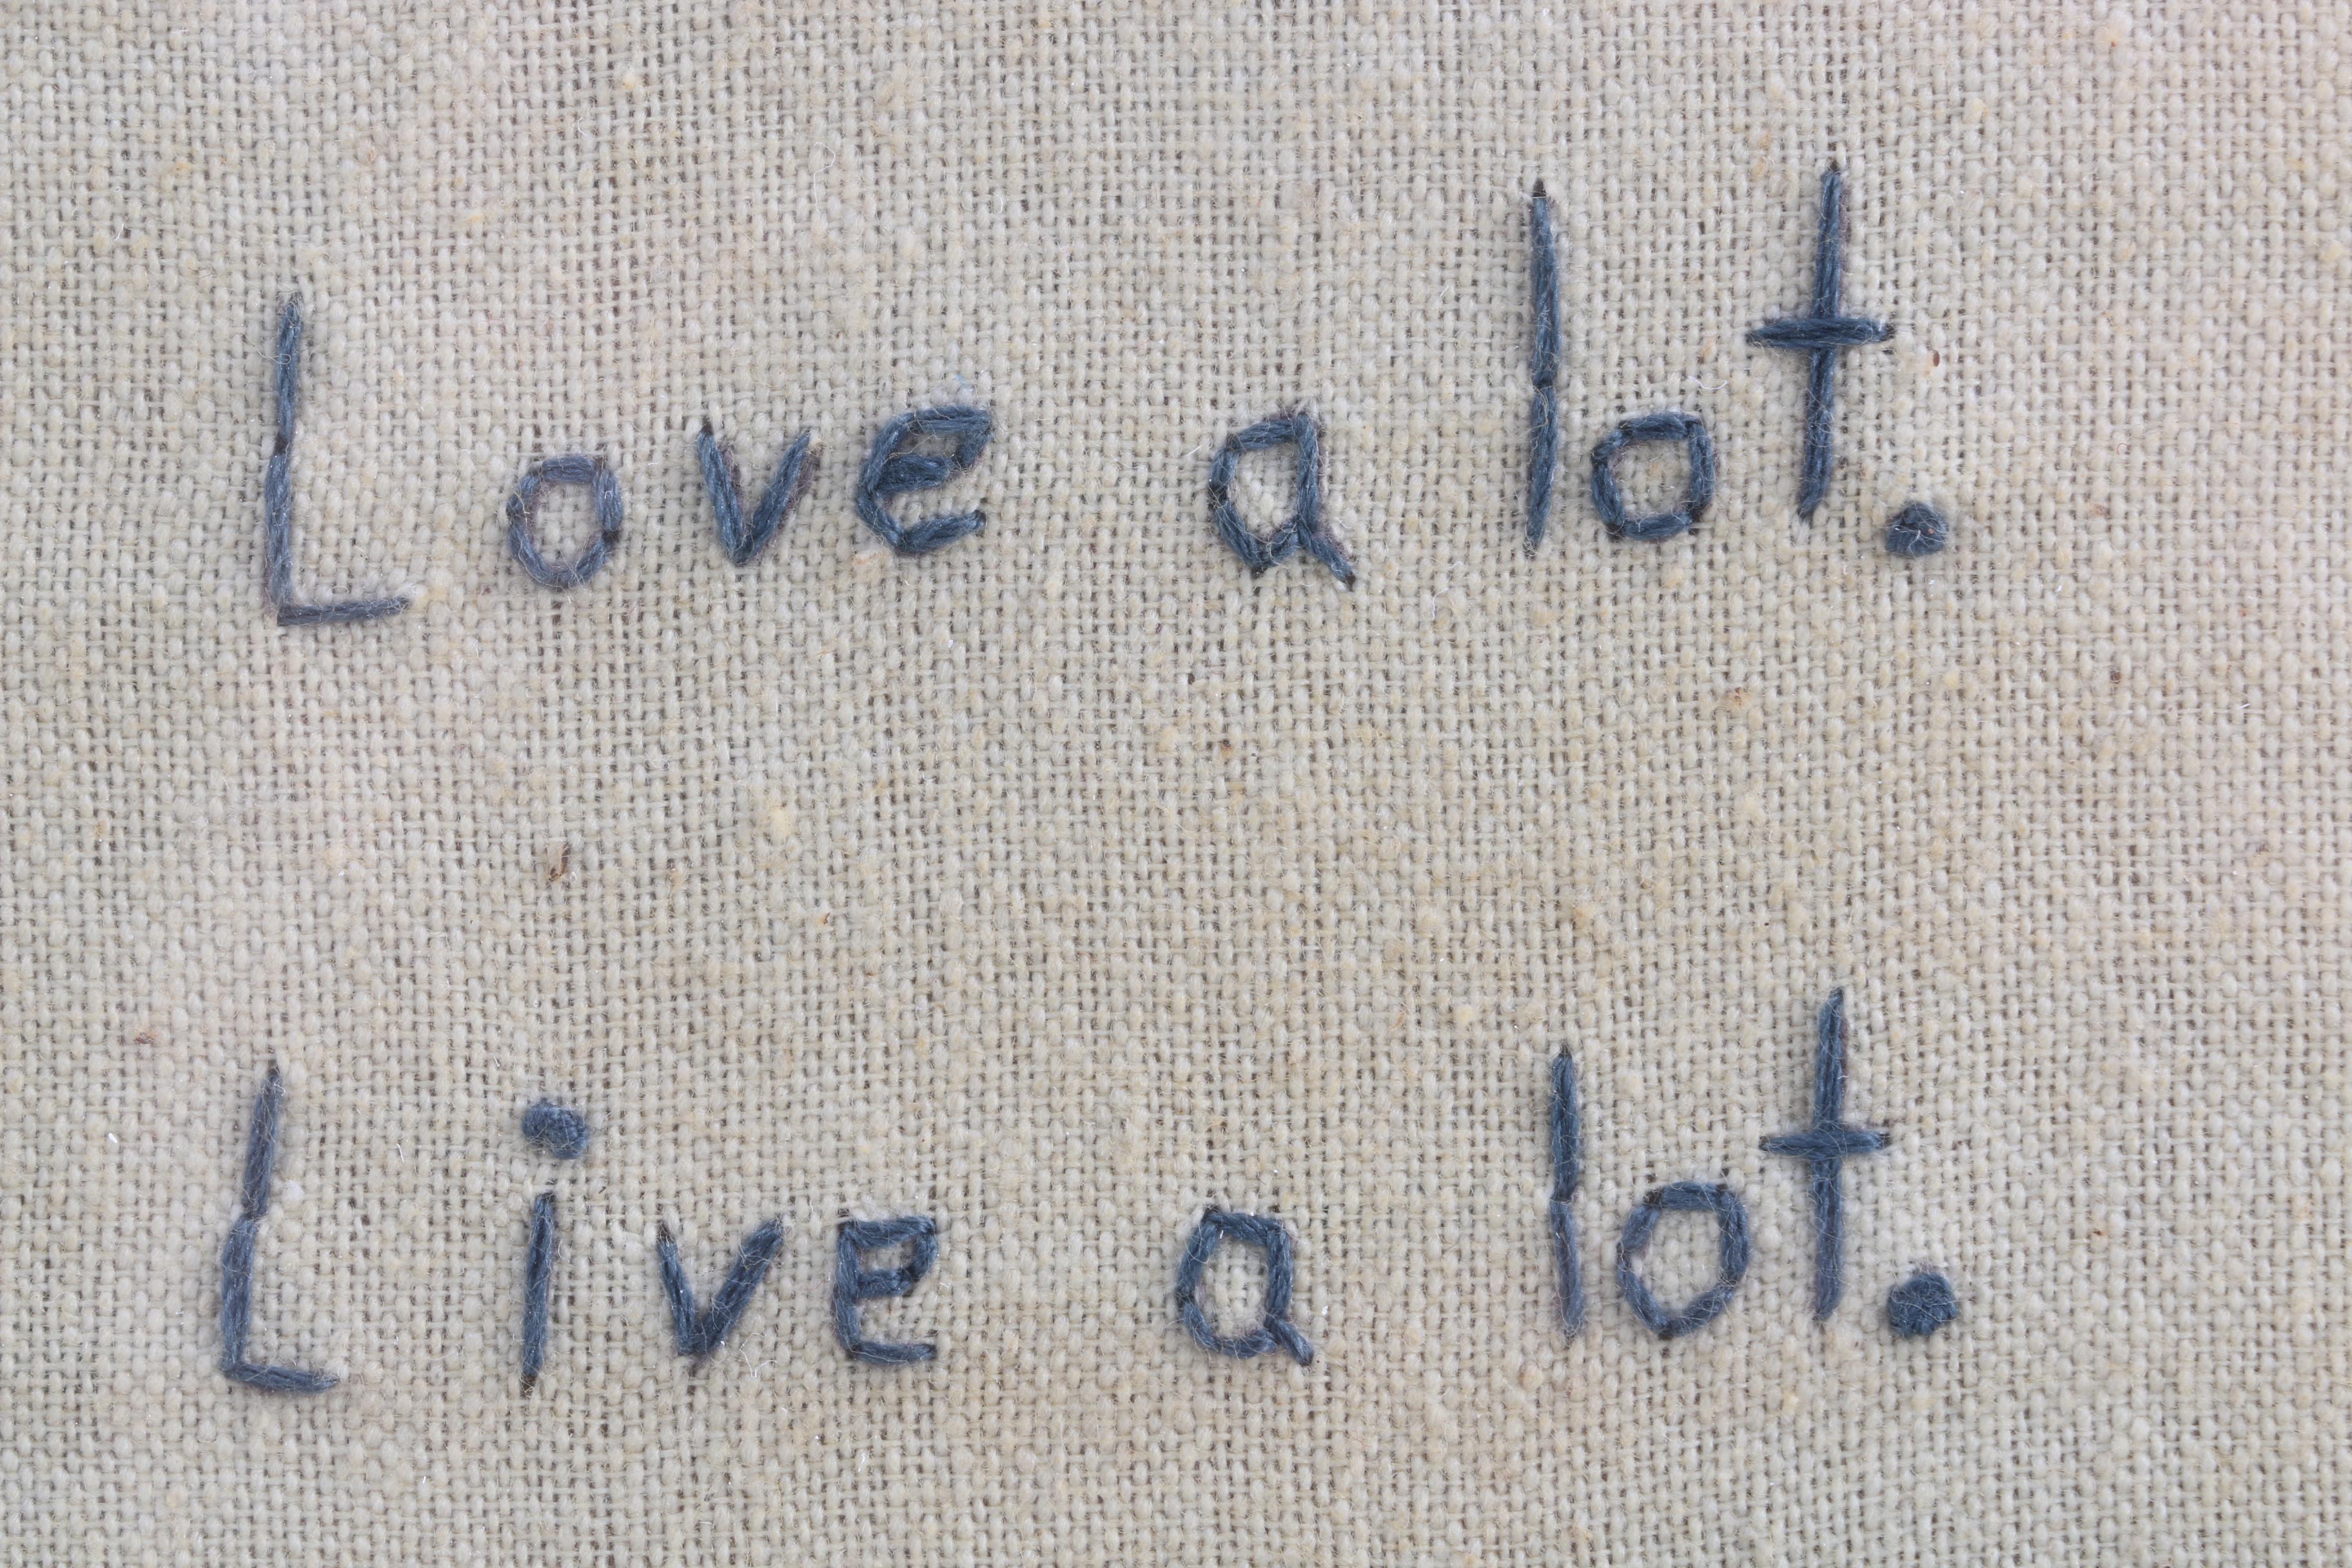 Love a lot.
Live a lot.